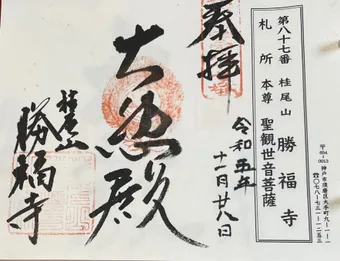 〒654-0013
神戸市須磨区大手町九-一-一
☎〇七八-七三一-一二五三
第八十七番 桂尾山 勝福寺
札所 本尊 聖観世音菩薩
奉拝
令和五年
十一月廿八日
大悲殿
桂尾山
勝福寺